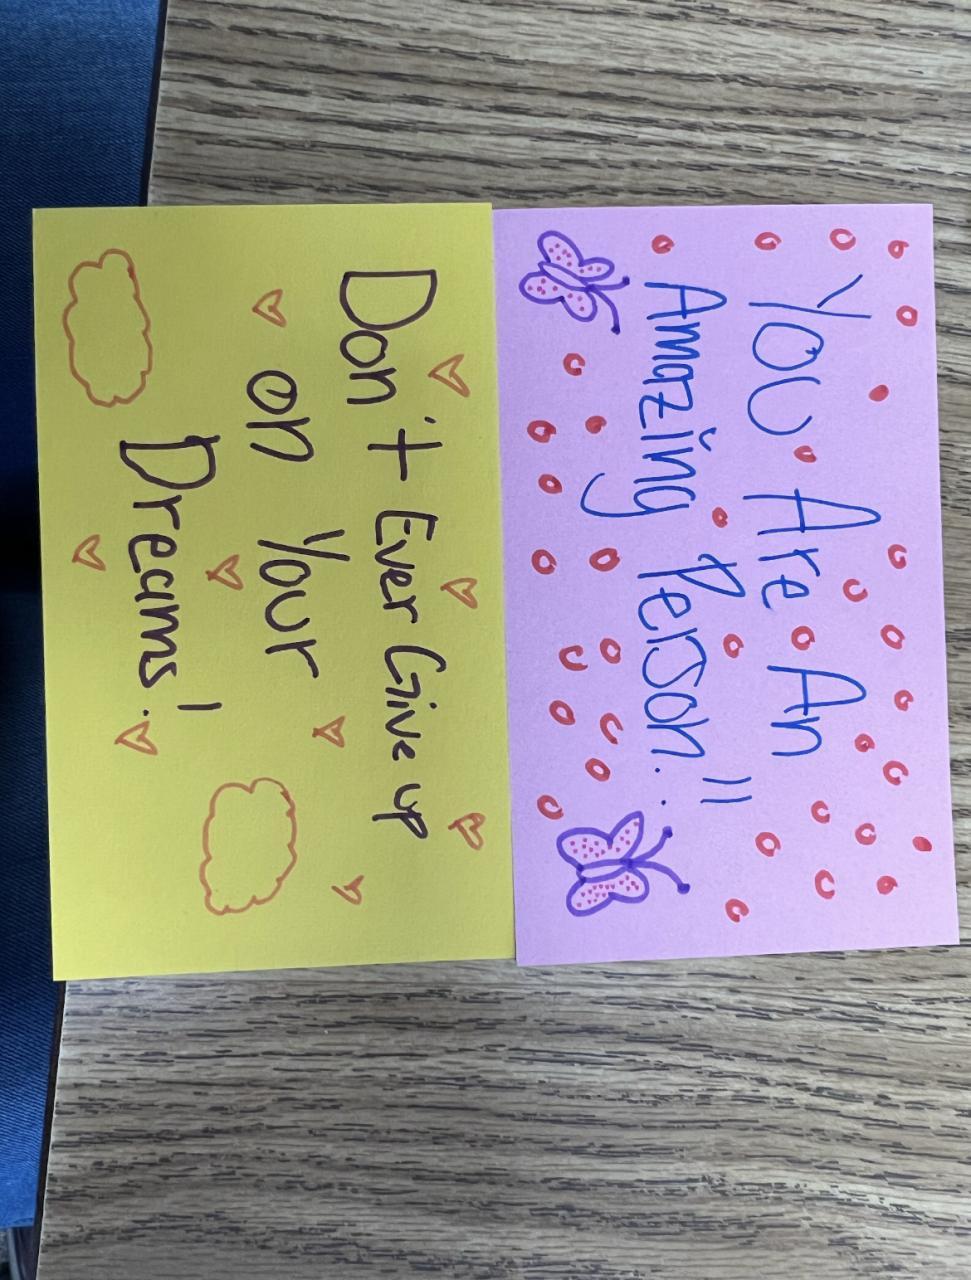 You Are An
Amazing Person!!
Don't Ever Give up
on Your
Dreams!